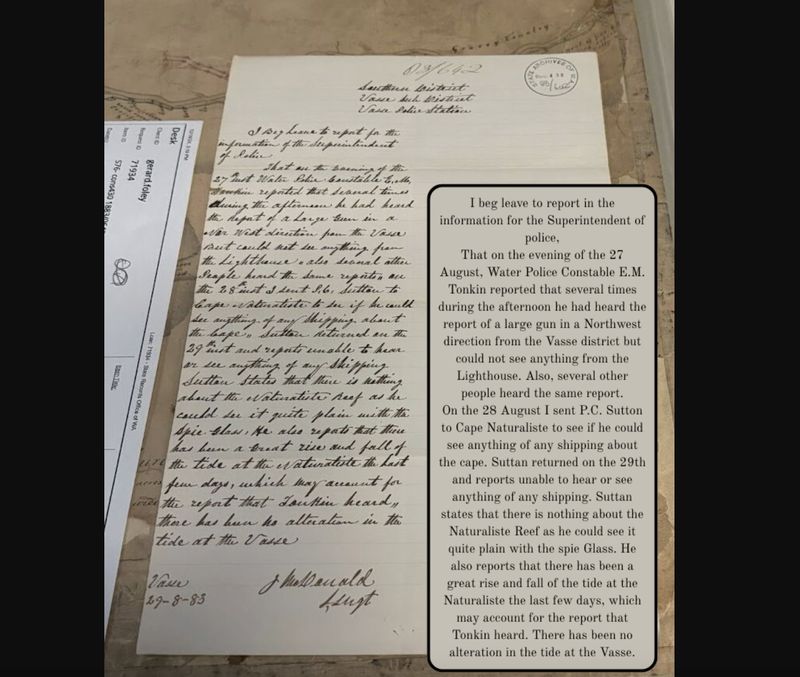 83/642
STATE ARCHIVES OF W.A.
Southern District
Vasse Sub District
Vasse Police Station
I Beg Leave to report for the
information of the Superintendent
of Police
That on the evening of the
27 inst Water Police Constable
Tonkin reported that several times
during the afternoon he had heard
the report of a Large Gun in a
Nor West direction from the Vasse
But could not see anything from
the Lighthouse, also several other
People heard the same reports, on
the 28th inst I sent P.C. Sutton to
Cape Naturaliste to see if he could
see anything of any Shipping about
the Cape, Sutton returned on the
29th inst and reports unable to hear
or see anything of any Shipping
Sutton States that there is nothing
about the Naturaliste Reef as he
could see it quite plain with the
Spie Glass, He also reports that there
has been a Great rise and fall of
the tide at the Naturaliste the last
few days, which may account for
the report that Tonkin heard,,
there has been no alteration in the
tide at the Vasse
Vasse
29-8-83
J McDonald
L Sergt
Desk
gerard.foley
71934
I beg leave to report in the
information for the Superintendent of
police,
That on the evening of the 27
August, Water Police Constable E.M.
Tonkin reported that several times
during the afternoon he had heard the
report of a large gun in a Northwest
direction from the Vasse district but
could not see anything from the
Lighthouse. Also, several other
people heard the same report.
On the 28 August I sent P.C. Sutton
to Cape Naturaliste to see if he could
see anything of any shipping about
the cape. Suttan returned on the 29th
and reports unable to hear or see
anything of any shipping. Suttan
states that there is nothing about the
Naturaliste Reef as he could see it
quite plain with the spie Glass. He
also reports that there has been a
great rise and fall of the tide at the
Naturaliste the last few days, which
may account for the report that
Tonkin heard. There has been no
alteration in the tide at the Vasse.